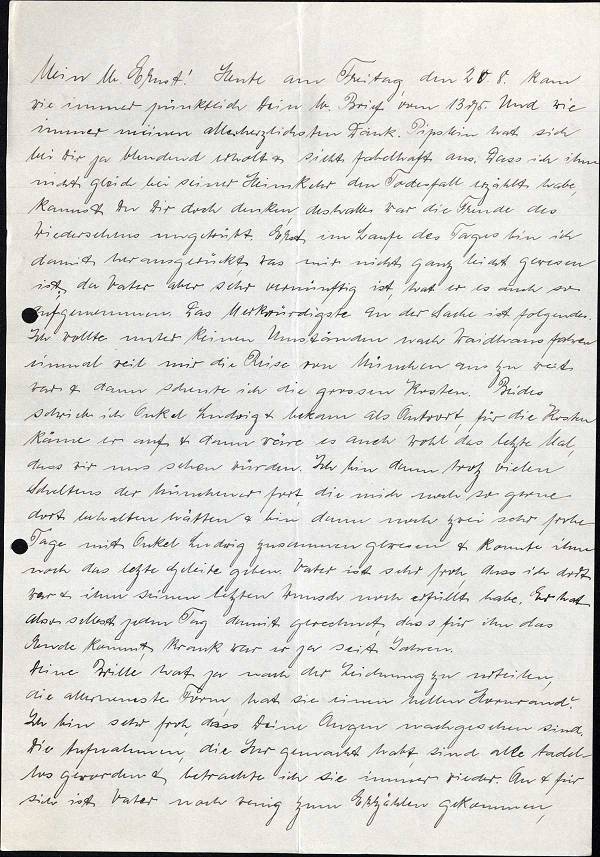 Mein lb. Ernst! Heute am Freitag den 20 8. kam
wie immer pünktlich Dein lb. Brief vom 13/8. Und wie
immer meinen allerherzlichsten Dank. Pipskin hat sich
bei Dir ja blendend erholt & sieht fabelhaft aus. Dass ich ihm
nicht gleich bei seiner Heimkehr den Todesfall erzählt habe,
kannst Du Dir doch denken, deshalb war die Freude des
Wiedersehens ungetrübt. Erst im Laufe des Tages bin ich
damit herausgerückt, was mir nicht ganz leicht gewesen
ist, da Vater aber sehr vernünftig ist, hat er es auch so
aufgenommen. Das Merkwürdigste an der Sache ist folgendes.
Ich wollte unter keinen Umständen nach Waidhaus fahren
einmal weil mir die Reise von München aus zu weit
war & dann scheute ich die grossen Kosten. Beides
schrieb ich Onkel Ludwig & bekam als Antwort für die Kosten
käme er auf & dann wäre es auch wohl das letzte Mal,
dass wir uns sehen würden. Ich bin dann trotz vielen
Scheltens der Münchener fort, die mich noch so gerne
dort behalten hätten & bin dann noch zwei sehr frohe
Tage mit Onkel Ludwig zusammen gewesen & konnte ihm
noch das letzte Geleite geben. Vater ist sehr froh, dass ich dort
war & ihm seinen letzten Wunsch noch erfüllt habe. Er hat
also selbst jeden Tag damit gerechnet, dass für ihn das
Ende kommt, krank war er ja seit Jahren.
Deine Brille hat ja nach der Zeichnung zu urteilen,
die allerneueste Form, hat sie einen hellen Hornrand?
Ich bin sehr froh, dass Deine Augen nachgesehen sind.
Die Aufnahmen, die Ihr gemacht habt, sind alle tadel-
los geworden & betrachte ich sie immer wieder. An & für
sich ist Vater noch wenig zum Erzählen gekommen,